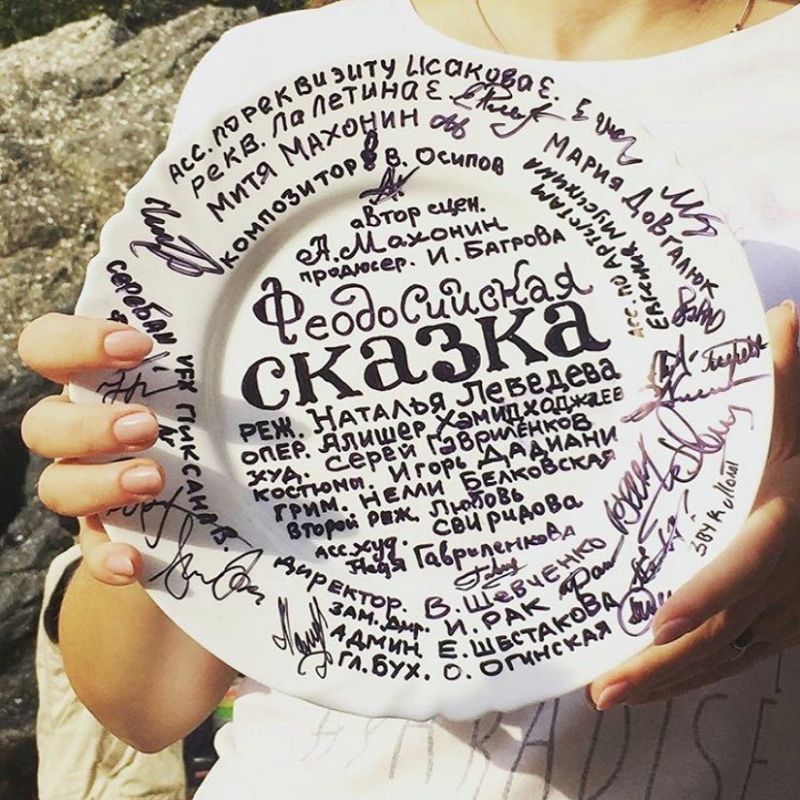 АСС. ПО РЕКВИЗИТУ ИСАКОВА Е.
РЕКВ. ЛАЛЕТИНА Е
МИТЯ МАХОНИН
КОМПОЗИТОР В. ОСИПОВ
АВТОР СЦЕН.
А. МАХОНИН
ПРОДЮСЕР. И. БАГРОВА
ФЕОДОСИЙСКАЯ
СКАЗКА
РЕЖ. НАТАЛЬЯ ЛЕБЕДЕВА
ОПЕР. АЛИШЕР ХАМИДХОДЖАЕВ
ХУД. СЕРЕЙ ГАВРИЛЕНКОВ
КОСТЮМЫ. ИГОРЬ ДАДИАНИ
ГРИМ. НЕЛЛИ БЕЛКОВСКАЯ
ВТОРОЙ РЕЖ. ЛЮБОВЬ
СВИРИДОВА
АСС. ХУД.
НАДЯ ГАВРИЛЕНКОВА
ДИРЕКТОР. В. ШЕВЧЕНКО
ЗАМ. ДИР. И. РАК
АДМИН. Е. ШЕСТАКОВА
ГЛ. БУХ. О. ОГИНСКАЯ
МАРИЯ ДОВГАЛЮК
АСС. ПО АРТИСТАМ
ЗВУК
VFX ПИКСАНОВ В.
СЕРЕБАН
PARADISE